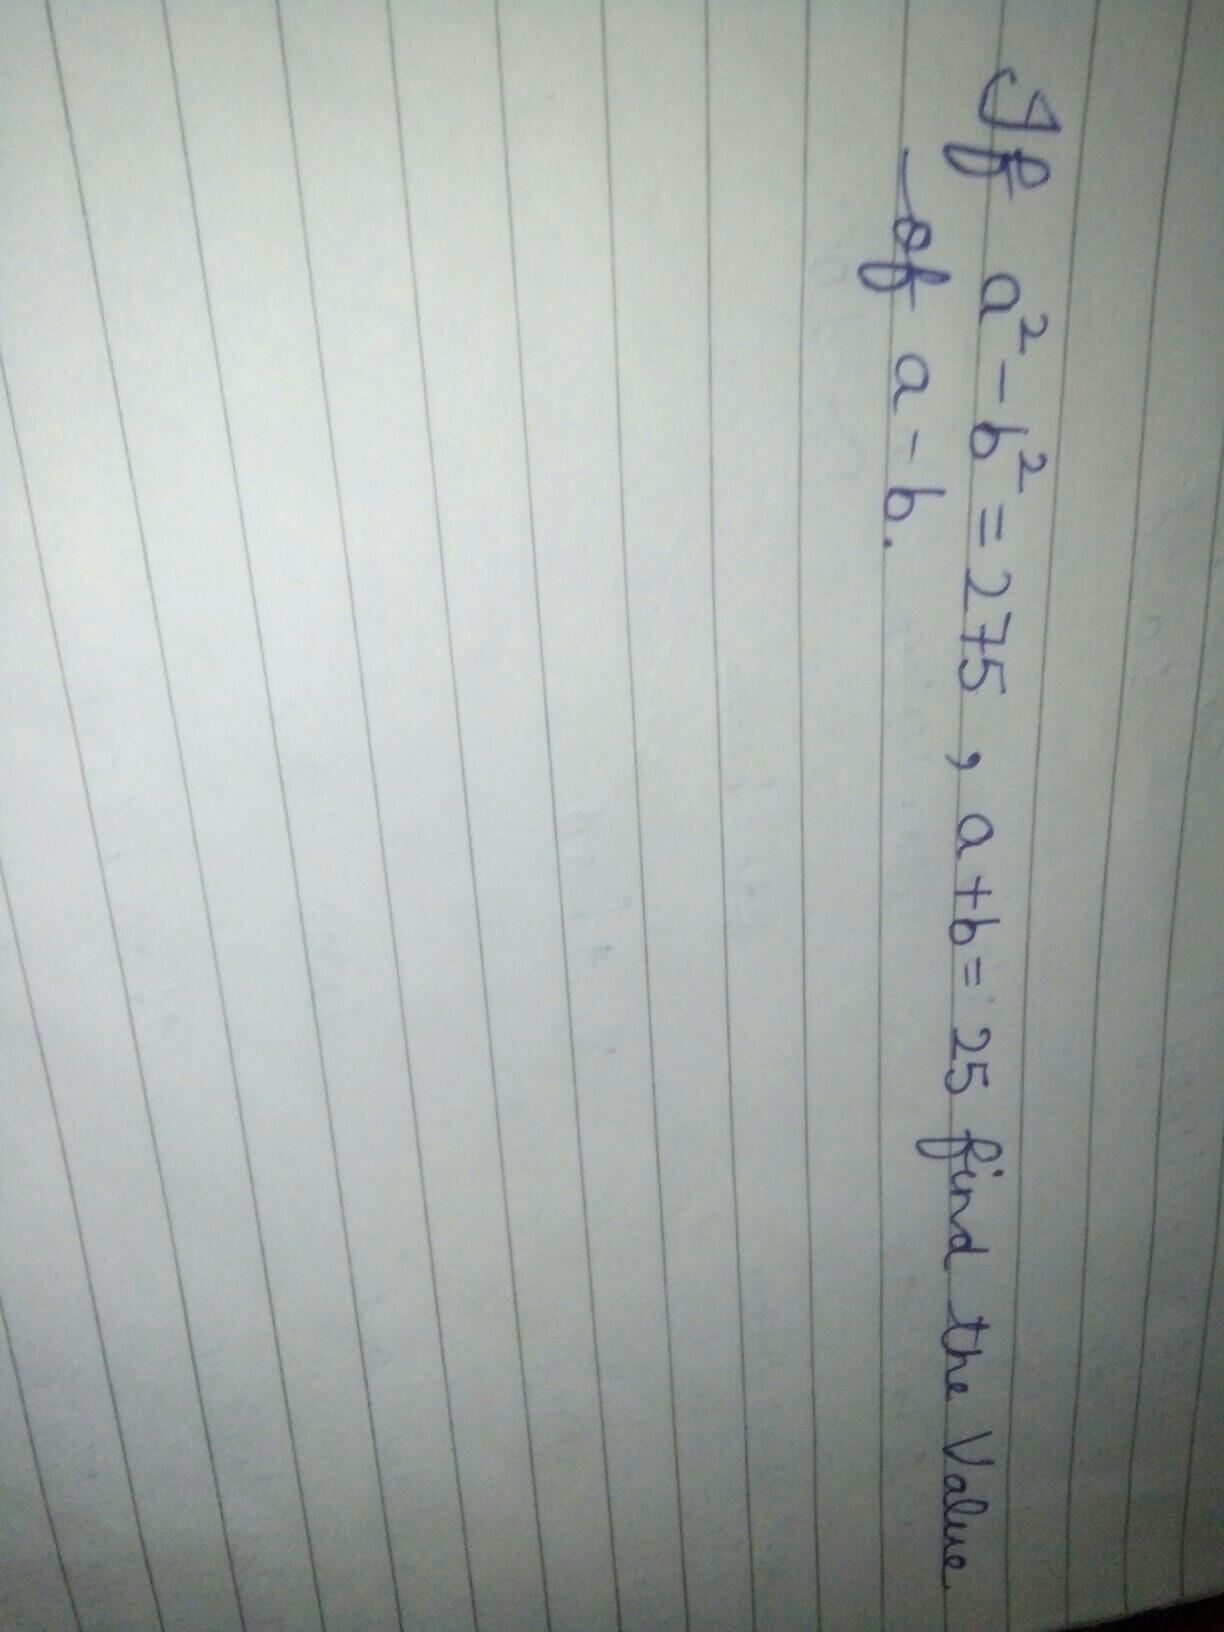 If a² - b² = 275, a + b = 25 find the Value
of a - b.